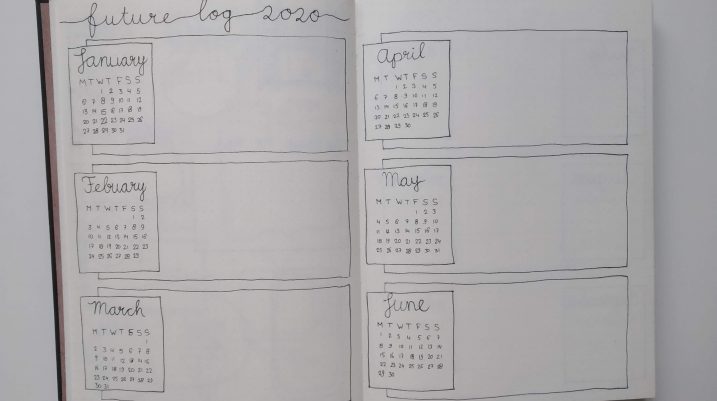 future log 2020
January
M T W T F S S
1 2 3 4 5
6 7 8 9 10 11 12
13 14 15 16 17 18 19
20 21 22 23 24 25 26
27 28 29 30 31
Febuary
M T W T F S S
1 2
3 4 5 6 7 8 9
10 11 12 13 14 15 16
17 18 19 20 21 22 23
24 25 26 27 28 29
March
M T W T F S S
1
2 3 4 5 6 7 8
9 10 11 12 13 14 15
16 17 18 19 20 21 22
23 24 25 26 27 28 29
30 31
April
M T W T F S S
1 2 3 4 5
6 7 8 9 10 11 12
13 14 15 16 17 18 19
20 21 22 23 24 25 26
27 28 29 30
May
M T W T F S S
1 2 3
4 5 6 7 8 9 10
11 12 13 14 15 16 17
18 19 20 21 22 23 24
25 26 27 28 29 30 31
June
M T W T F S S
1 2 3 4 5 6 7
8 9 10 11 12 13 14
15 16 17 18 19 20 21
22 23 24 25 26 27 28
29 30